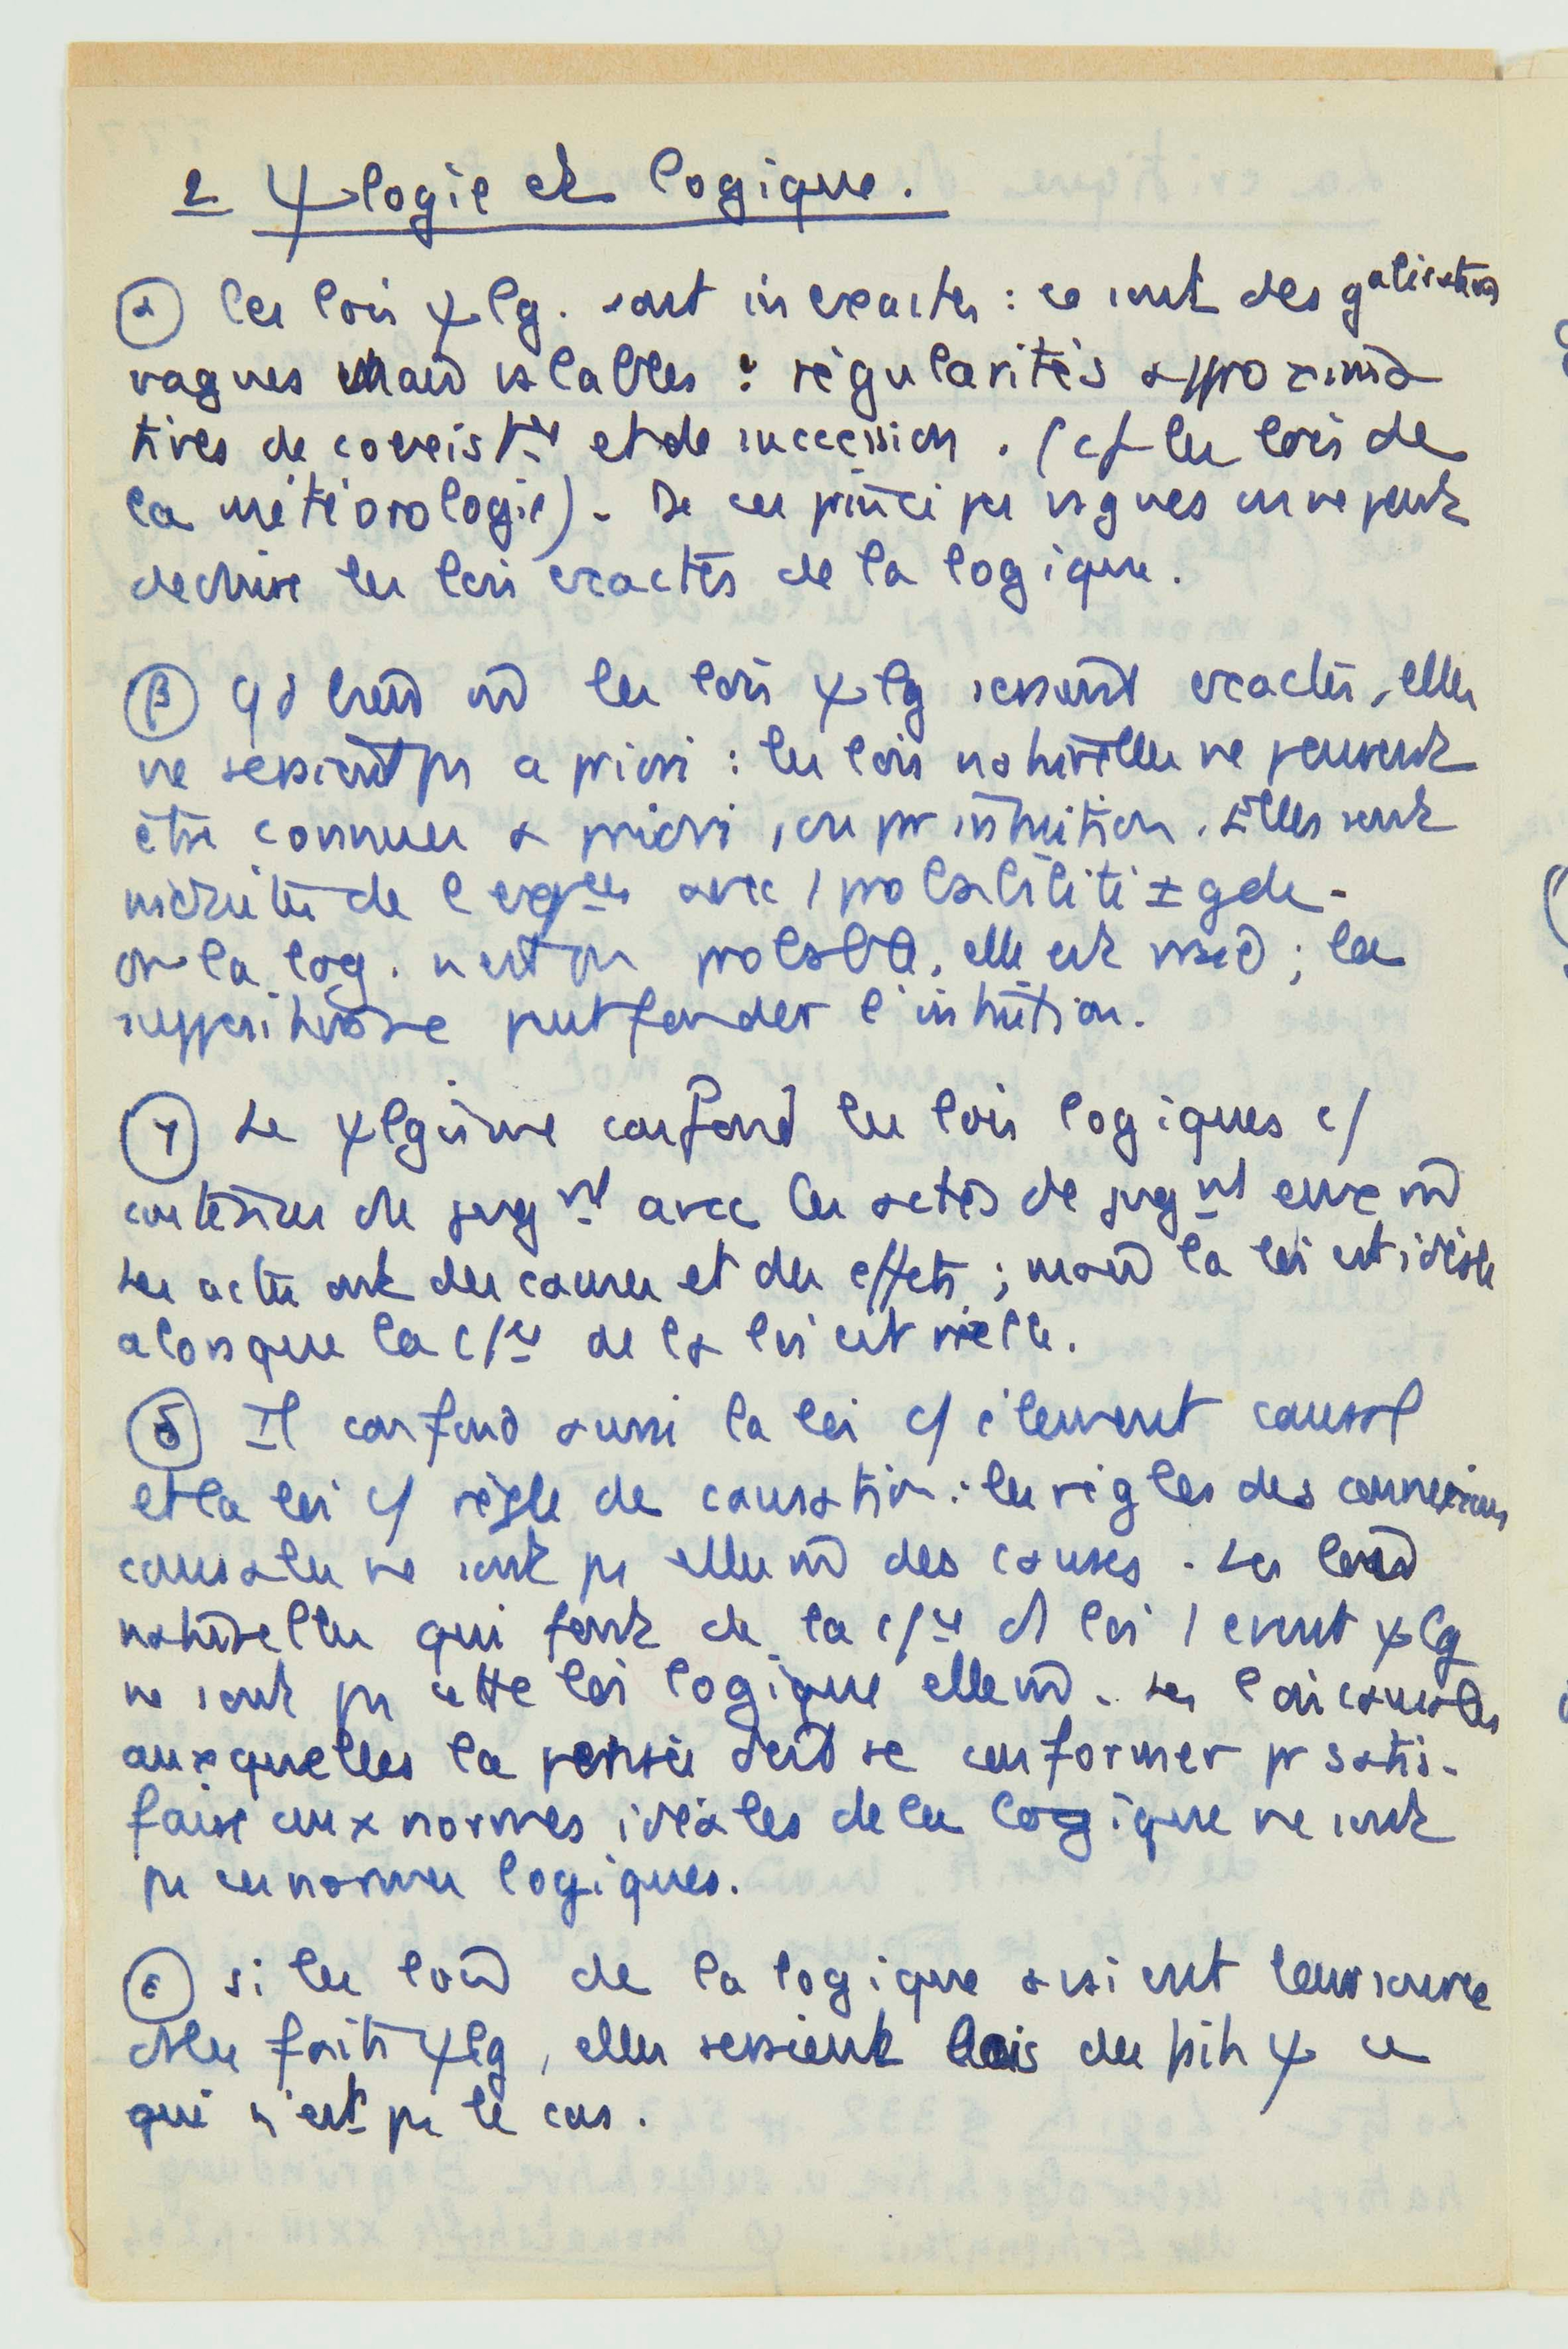 2 ψlogie et logique.
α les lois ψlg. sont inexactes : ce sont des galisations
vagues mais valables : régularités approxima
tives de coexistce et de succession. (cf les lois de
la météorologie). De ces principes vagues on ne peut
déduire les lois exactes de la logique.
β qd bien m̄ les lois ψlg seraient exactes, elles
ne seraient pas a priori : les lois naturelles ne peuvent
être connues a priori, ou pr intuition. Elles sont
induites de l'expce avec / probabilité ± gde.
or la log. n'est pas probable, elle est vraie ; la
peut fonder l'intuition.
γ Le ψlgisme confond les lois logiques c/
contenu de jugnt avec les actes de jugnt eux m̄
Les actes ont des causes et des effets ; mais la loi est idéale
alors que la c/ce de la loi est réelle.
δ Il confond aussi la loi c/ élément causal
et la loi c/ règle de causation : les règles des connexions
causales ne sont pas elles m̄ des causes. Les lois
naturelles qui font de la c/ce d'1 loi / evnt ψlg
ne sont pas cette loi logique elle m̄. Les lois causales
auxquelles la pensée doit se conformer pr satis-
faire aux normes idéales de la logique ne sont
pas ces normes logiques.
ε si les lois de la logique avaient leur source
ds les faits ψlg, elles seraient lois des faits ψ ce
qui n'est pas le cas.